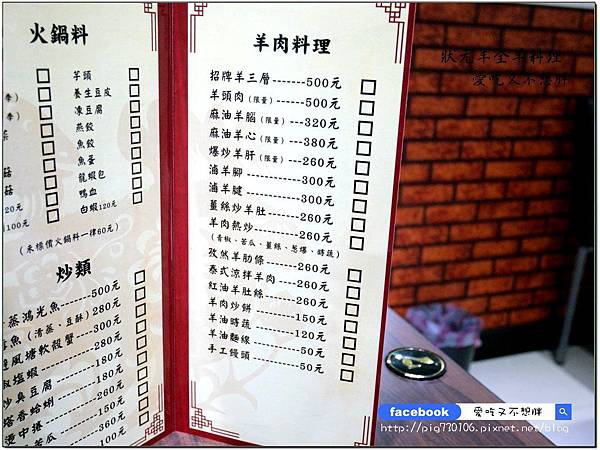 火鍋料
芋頭
養生豆皮
凍豆腐
燕餃
魚餃
魚蛋
龍蝦包
鴨血
白蝦120元
20元
100元
(未標價火鍋料一律60元)
炒類
蒸鴻光魚-----500元
魚(清蒸、豆酥)280元
避風塘軟殼蟹----300元
椒塩蝦--------280元
炒臭豆腐------180元
塔香蛤蜊------180元
燙中捲--------360元
苦瓜----100元
羊肉料理
招牌羊三層-------500元
羊頭肉(限量)-----500元
麻油羊腦(限量)---320元
麻油羊心(限量)---380元
爆炒羊肝(限量)---260元
滷羊腳----------300元
滷羊腱----------300元
薑絲炒羊肚------260元
羊肉熱炒--------260元
(青椒、苦瓜、薑絲、蔥爆、時蔬)
孜然羊肋條------260元
泰式涼拌羊肉----260元
紅油羊肚絲------260元
羊肉炒餅--------150元
羊油時蔬--------120元
羊油麵線---------50元
手工饅頭---------50元
狀元羊全羊料理
愛吃又不想胖
facebook 愛吃又不想胖
http://pig770106.pixnet.net/blog